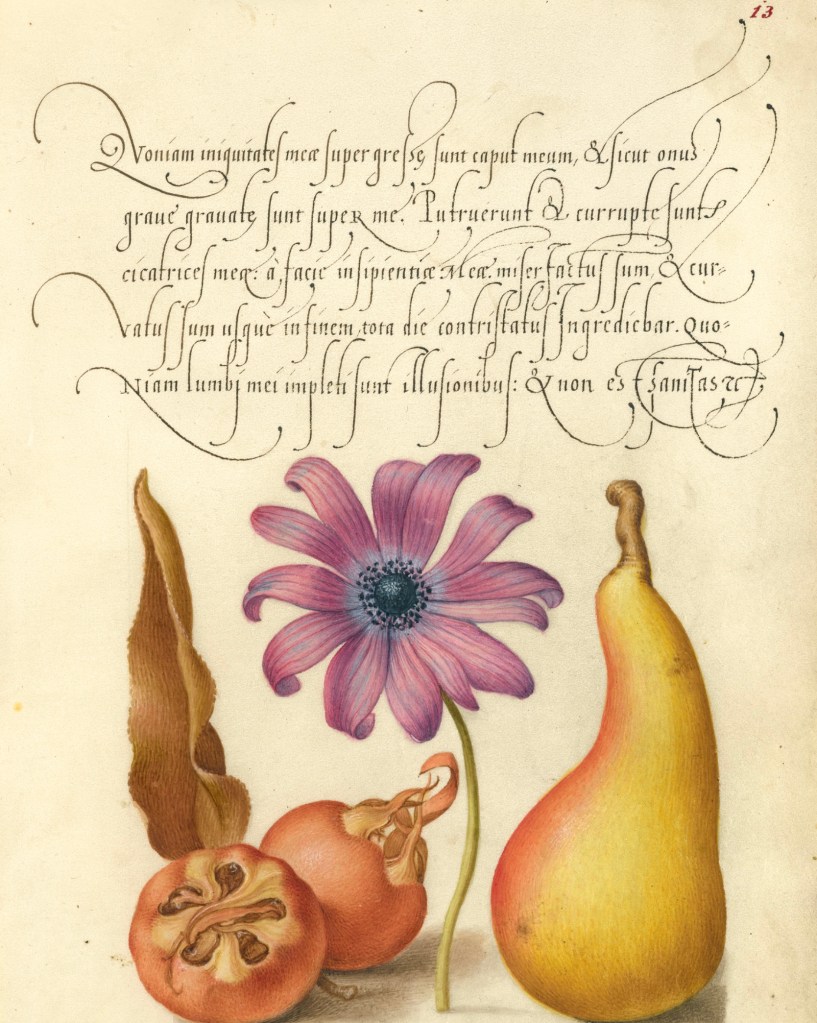 13
Quoniam iniquitates meæ supergressę sunt caput meum, & sicut onus
graue grauatę sunt supeR me. Putruerunt & currupte sunt
cicatrices meæ: à facie insipientiæ Meæ. miser factus sum, & cur=
Vatus sum usque in finem, tota die contristatus Ingrediebar. Quo=
Niam lumbi mei impleti sunt illusionibus: & non est sanitas &c